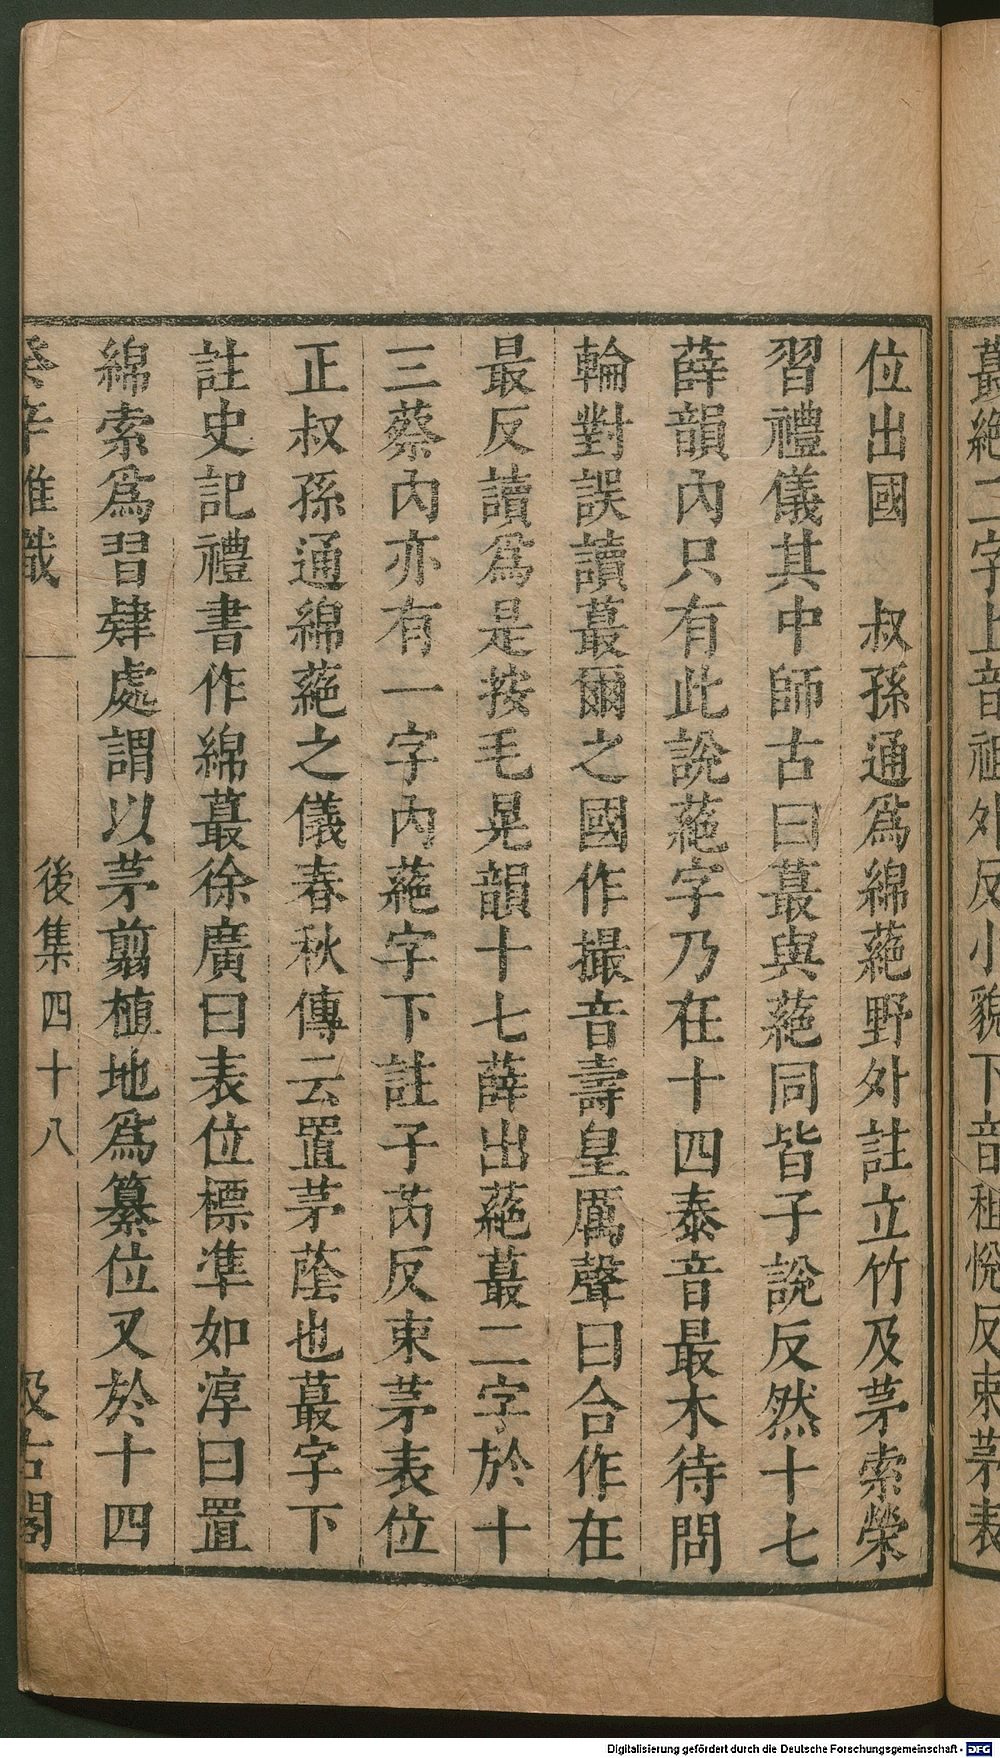 蕞蕝二字上音祖外反小貌下音租悅反束茅表
位出國　叔孫通爲綿蕝野外註立竹及茅索榮
習禮儀其中師古曰蕞與蕝同皆子說反然十七
薛韻內只有此說蕝字乃在十四泰音最木待問
輪對誤讀蕞爾之國作撮音壽皇厲聲曰合作在
最反讀爲是按毛晃韻十七薛出蕝蕞二字於十
三蔡內亦有一字內蕝字下註子芮反束茅表位
正叔孫通綿蕝之儀春秋傳云置茅蕝也蕞字下
註史記禮書作綿蕞徐廣曰表位標準如淳曰置
綿索爲習肄處謂以茅翦植地爲纂位又於十四
癸辛雜識
後集四十八
汲古閣
Digitalisierung gefördert durch die Deutsche Forschungsgemeinschaft - DFG